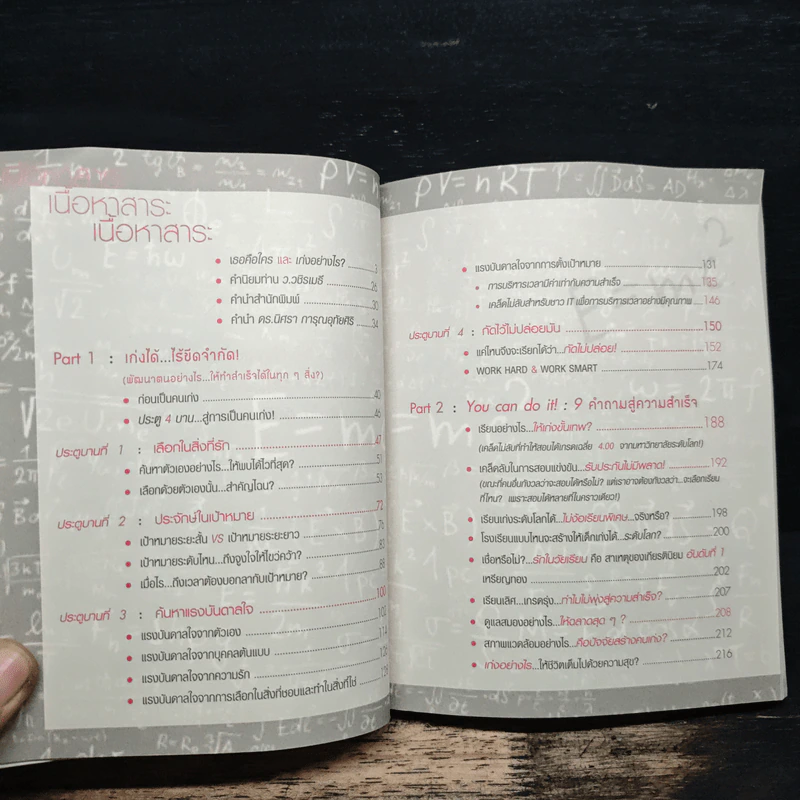 เนื้อหาสาระ
เนื้อหาสาระ
• เธอคือใคร และ เก่งอย่างไร?
• คำนิยมท่าน ว.วชิรเมธี 26
• คำนำสำนักพิมพ์ 30
• คำนำ ดร.นิศรา การุณอุทัยศิริ 34
Part 1 : เก่งได้...ไร้ขีดจำกัด!
(พัฒนาตนอย่างไร...ให้ทำสำเร็จได้ในทุก ๆ สิ่ง?)
• ก่อนเป็นคนเก่ง 40
• ประตู 4 บาน...สู่การเป็นคนเก่ง! 46
ประตูบานที่ 1 : เลือกในสิ่งที่รัก 47
• ค้นหาตัวเองอย่างไร...ให้พบได้ไวที่สุด? 51
• เลือกด้วยตัวเองนั้น...สำคัญไฉน? 53
ประตูบานที่ 2 : ประจักษ์ในเป้าหมาย 72
• เป้าหมายระยะสั้น VS เป้าหมายระยะยาว 76
• เป้าหมายระดับไหน...ถึงจูงใจให้ไขว่คว้า? 83
• เมื่อไร...ถึงเวลาต้องบอกลากับเป้าหมาย? 88
ประตูบานที่ 3 : ค้นหาแรงบันดาลใจ 100
• แรงบันดาลใจจากตัวเอง 102
• แรงบันดาลใจจากบุคคลต้นแบบ 114
• แรงบันดาลใจจากความรัก
• แรงบันดาลใจจากการเลือกในสิ่งที่ชอบและทำในสิ่งที่ใช่
• แรงบันดาลใจจากการตั้งเป้าหมาย 131
• การบริหารเวลามีค่าเท่ากับความสำเร็จ 135
• เคล็ดไม่ลับสำหรับชาว IT เพื่อการบริหารเวลาอย่างมีคุณภาพ 146
ประตูบานที่ 4 : กัดไว้ไม่ปล่อยมัน 150
• แค่ไหนจึงจะเรียกได้ว่า...กัดไม่ปล่อย! 152
• WORK HARD & WORK SMART 174
Part 2 : You can do it! : 9 คำถามสู่ความสำเร็จ
• เรียนอย่างไร...ให้เก่งขั้นเทพ? 188
(เคล็ดไม่ลับที่ทำให้สอบได้เกรดเฉลี่ย 4.00 จากมหาวิทยาลัยระดับโลก!)
• เคล็ดลับในการสอบแข่งขัน...รับประกันไม่มีพลาด! 192
(ขณะที่คนอื่นกังวลว่าจะสอบได้หรือไม่? แต่เราอาจต้องกังวลว่า...จะเลือกเรียน
ที่ไหน? เพราะสอบได้หลายที่ในคราวเดียว!)
• เรียนเก่งระดับโลกได้...ไม่ง้อเรียนพิเศษ...จริงหรือ? 198
• โรงเรียนแบบไหนจะสร้างให้เด็กเก่งได้...ระดับโลก? 200
• เชื่อหรือไม่?...รักในวัยเรียน คือ สาเหตุของเกียรตินิยม อันดับที่ 1
เหรียญทอง 202
• เรียนเลิศ...เกรดรุ่ง...ทำไมไม่พุ่งสู่ความสำเร็จ? 207
• ดูแลสมองอย่างไร...ให้ฉลาดสุด ๆ ? 208
• สภาพแวดล้อมอย่างไร...คือปัจจัยสร้างคนเก่ง? 212
• เก่งอย่างไร...ให้ชีวิตเต็มไปด้วยความสุข? 216